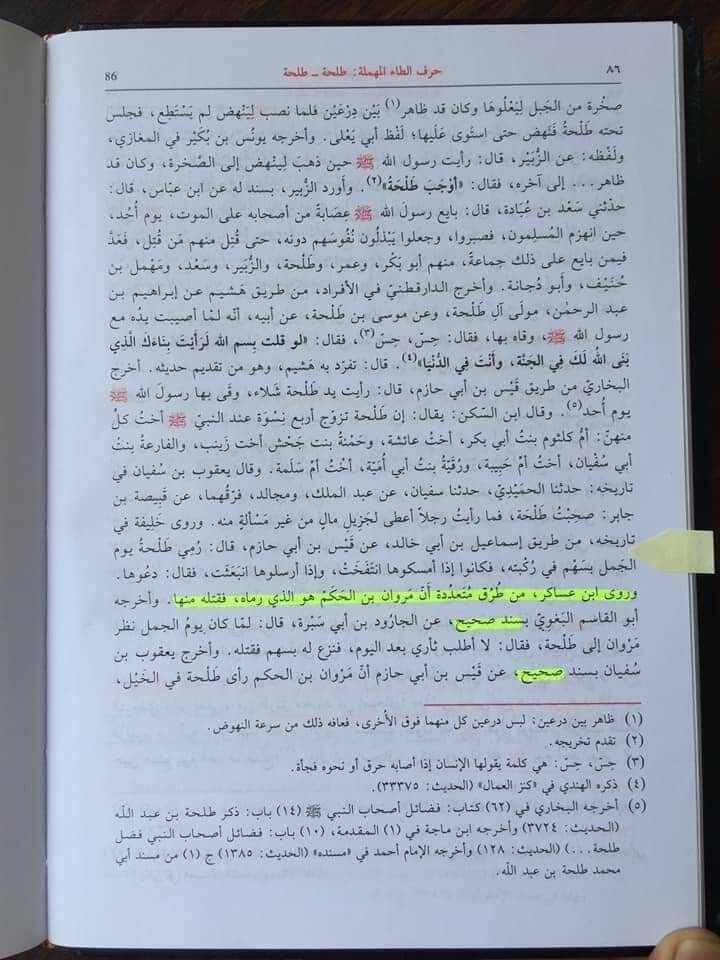 ٨٦ حرف الطاء المهملة: طلحة - طلحة 86
صخْرة من الجَبل لِيَعْلُوهَا وكان قد ظاهر(١) بَيْن دِرْعَيْن فلما نصب لِيَنْهض لم يَسْتَطِع، فجلس
تحته طَلْحةُ فَنَهض حتى استَوى عَلَيها؛ لَفْظ أبي يَعْلى. وأخرجه يونُس بن بُكَيْر في المغازي،
ولَفْظه: عن الزُّبَيْر، قال: رأيت رسول الله ﷺ حين ذهبَ لِينْهض إلى الصَّخرة، وكان قد
ظاهر... إلى آخره، فقال: «أَوْجَبَ طَلْحَةُ»(٢). وأَورد الزُّبير، بسند له عن ابن عبّاس، قال:
حدّثني سَعْد بن عُبَادة، قال: بايع رسولَ الله ﷺ عِصَابةٌ من أصحابه على الموت، يوم أُحُد،
حين انهزم المُسلِمون، فصبروا، وجعلوا يَبْذُلُون نُفُوسَهم دونه، حتى قُتِل منهم مَن قُتِل، فَعَدّ
فيمن بايع على ذلك جماعةً، منهم أبو بَكْر، وعمر، وطَلْحة، والزُّبَير، وسَعْد، وسَهْمل بن
حُنَيْف، وأبو دُجانة. وأخرج الدارقطنيّ في الأفراد، من طريق هَشيم عن إبراهيم بن
عبد الرحمٰن، مولَى آل طَلْحة، وعن موسى بن طَلْحة، عن أبيه، أنّه لمّا أصيبت يدُه مع
رسول الله ﷺ، وقاه بها، فقال: حِسّ، حِسّ(٣)، فقال: «لو قلت بِسم الله لَرَأَيْتَ بِنَاءَكَ الَّذِي
بَنَى اللهُ لَكَ فِي الجَنَّة، وأَنْتَ فِي الدُّنْيا»(٤). قال: تفرّد به هَشيم، وهو من تقديم حديثه. أخرج
البخاريّ من طريق قَيْس بن أبي حازم، قال: رأيت يد طَلْحة شَلاء، وقَى بها رسولَ الله ﷺ
يوم أُحد(٥). وقال ابن السّكن: يقال: إن طَلْحة تزوّج أربع نِسْوَة عند النبيّ ﷺ أختُ كلٍّ
منهنّ: أمّ كلثوم بنتُ أبي بكر، أختُ عائشة، وحَمْنةُ بنت جَحْش أخت زَينب، والفارعةُ بنتُ
أبي سُفْيان، أختُ أمّ حَبيبة، ورُقَيّةُ بنتُ أبي أُمَيّة، أخْتُ أمّ سَلَمة. وقال يعقوب بن سُفيان في
تاريخه: حدثنا الحمَيْديّ، حدثنا سفيان، عن عبد الملك، ومجالد، فرّقهُما، عن قَبِيصة بن
جابر: صحِبْتُ طَلْحَة، فما رأيتُ رجلاً أعطى لجَزِيلِ مالٍ من غير مَسألةٍ منه. وروى خَلِيفة في
تاريخه، من طريق إسماعيل بن أبي خالد، عن قَيْس بن أبي حازم، قال: رُمِي طَلْحةُ يوم
الجَمل بسَهْم في رُكْبته، فكانوا إذا أمسكوها انتفَخَتْ، وإذا أرسلوها انبَعَثَت، فقال: دعُوها.
وروى ابن عساكر، من طُرُق مُتعدِّدة أنّ مَروان بن الحَكَمْ هو الذي رماه، فقتله منها. وأخرجه
أبو القاسم البَغويّ بسند صحيح، عن الجارود بن أبي سَبْرة، قال: لمّا كان يوم الجمل نظر
مَرْوان إلى طَلْحة، فقال: لا أطلب ثأري بعد اليوم، فنزع له بسهم فقتله. وأخرج يعقوب بن
سُفيان بسند صحيح، عن قَيْس بن أبي حازم أنّ مَرْوان بن الحكم رأى طَلْحة في الخَيْل،
(١) ظاهر بين درعين: لبس درعين كل منهما فوق الأُخرى، فعافه ذلك من سرعة النهوض.
(٢) تقدم تخريجه.
(٣) حِسّ، حِسّ: هي كلمة يقولها الإنسان إذا أصابه حرق أو نحوه فجأة.
(٤) ذكره الهندي في «كنز العمال» (الحديث: ٣٣٣٧٥).
(٥) أخرجه البخاري في (٦٢) كتاب: فضائل أصحاب النبي ﷺ (١٤) باب: ذكر طلحة بن عبد الله
(الحديث: ٣٧٢٤) وأخرجه ابن ماجة في (١) المقدمة، (١٠) باب: فضائل أصحاب النبي فضل
طلحة...) (الحديث: ١٢٨) وأخرجه الإمام أحمد في «مسنده» (الحديث: ١٣٨٥) ج (١) من مسند أبي
محمد طلحة بن عبد الله.